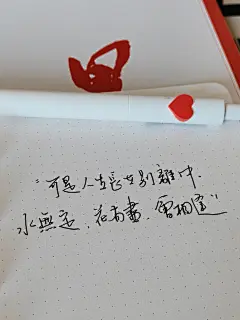 “可是人生長在別離中.
水無定.花有盡.會相逢”